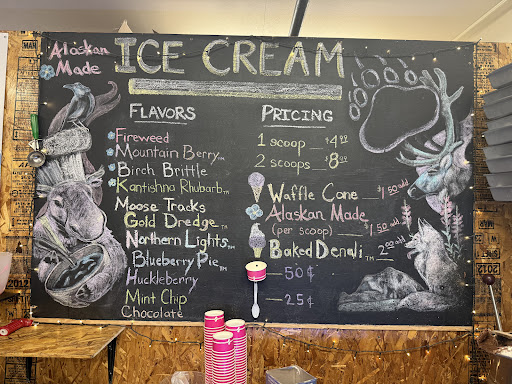 Alaskan
Made
ICE CREAM
FLAVORS
Fireweed
Mountain Berry™
Birch Brittle
Kantishna Rhubarb™
Moose Tracks
Gold Dredge™
Northern Lights™
Blueberry Pie™
Huckleberry
Mint Chip
Chocolate
PRICING
1 scoop $4.00
2 scoops $8.00
Waffle Cone $1.50 add
Alaskan Made
(per scoop) $1.50 add
Baked Denali™ 2.00 add
50¢
25¢